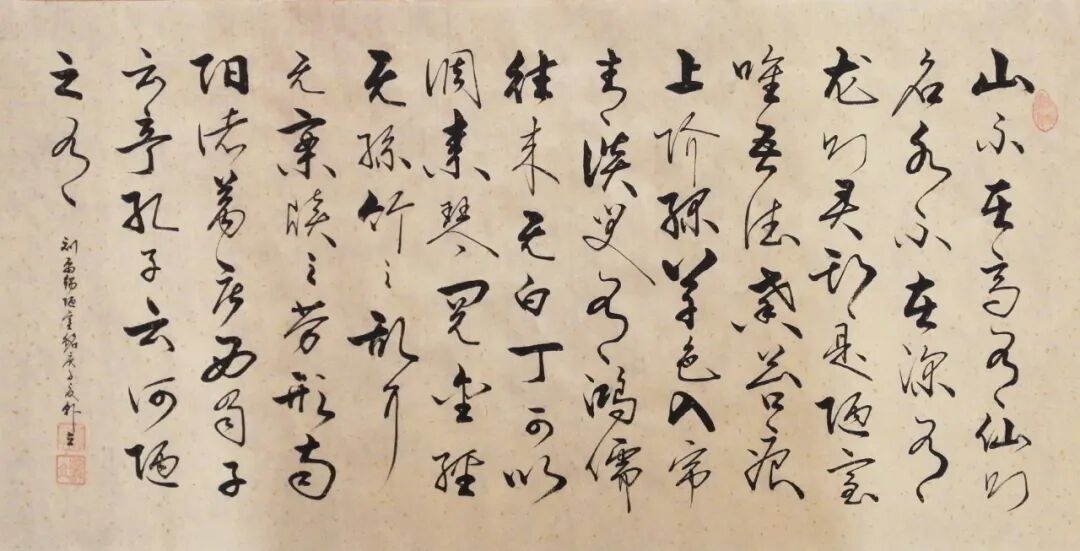 山不在高有仙则
名水不在深有
龙则灵斯是陋室
唯吾德馨苔痕
上阶绿草色入帘
青谈笑有鸿儒
往来无白丁可以
调素琴阅金经
无丝竹之乱耳
无案牍之劳形南
阳诸葛庐西蜀子
云亭孔子云何陋
之有
刘禹锡陋室铭庚子夏